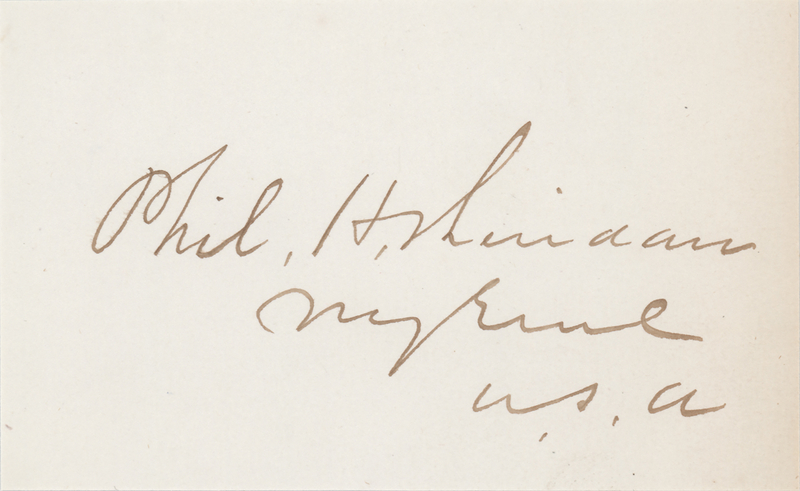 Phil. H. Sheridan
Maj Genl
U.S.A